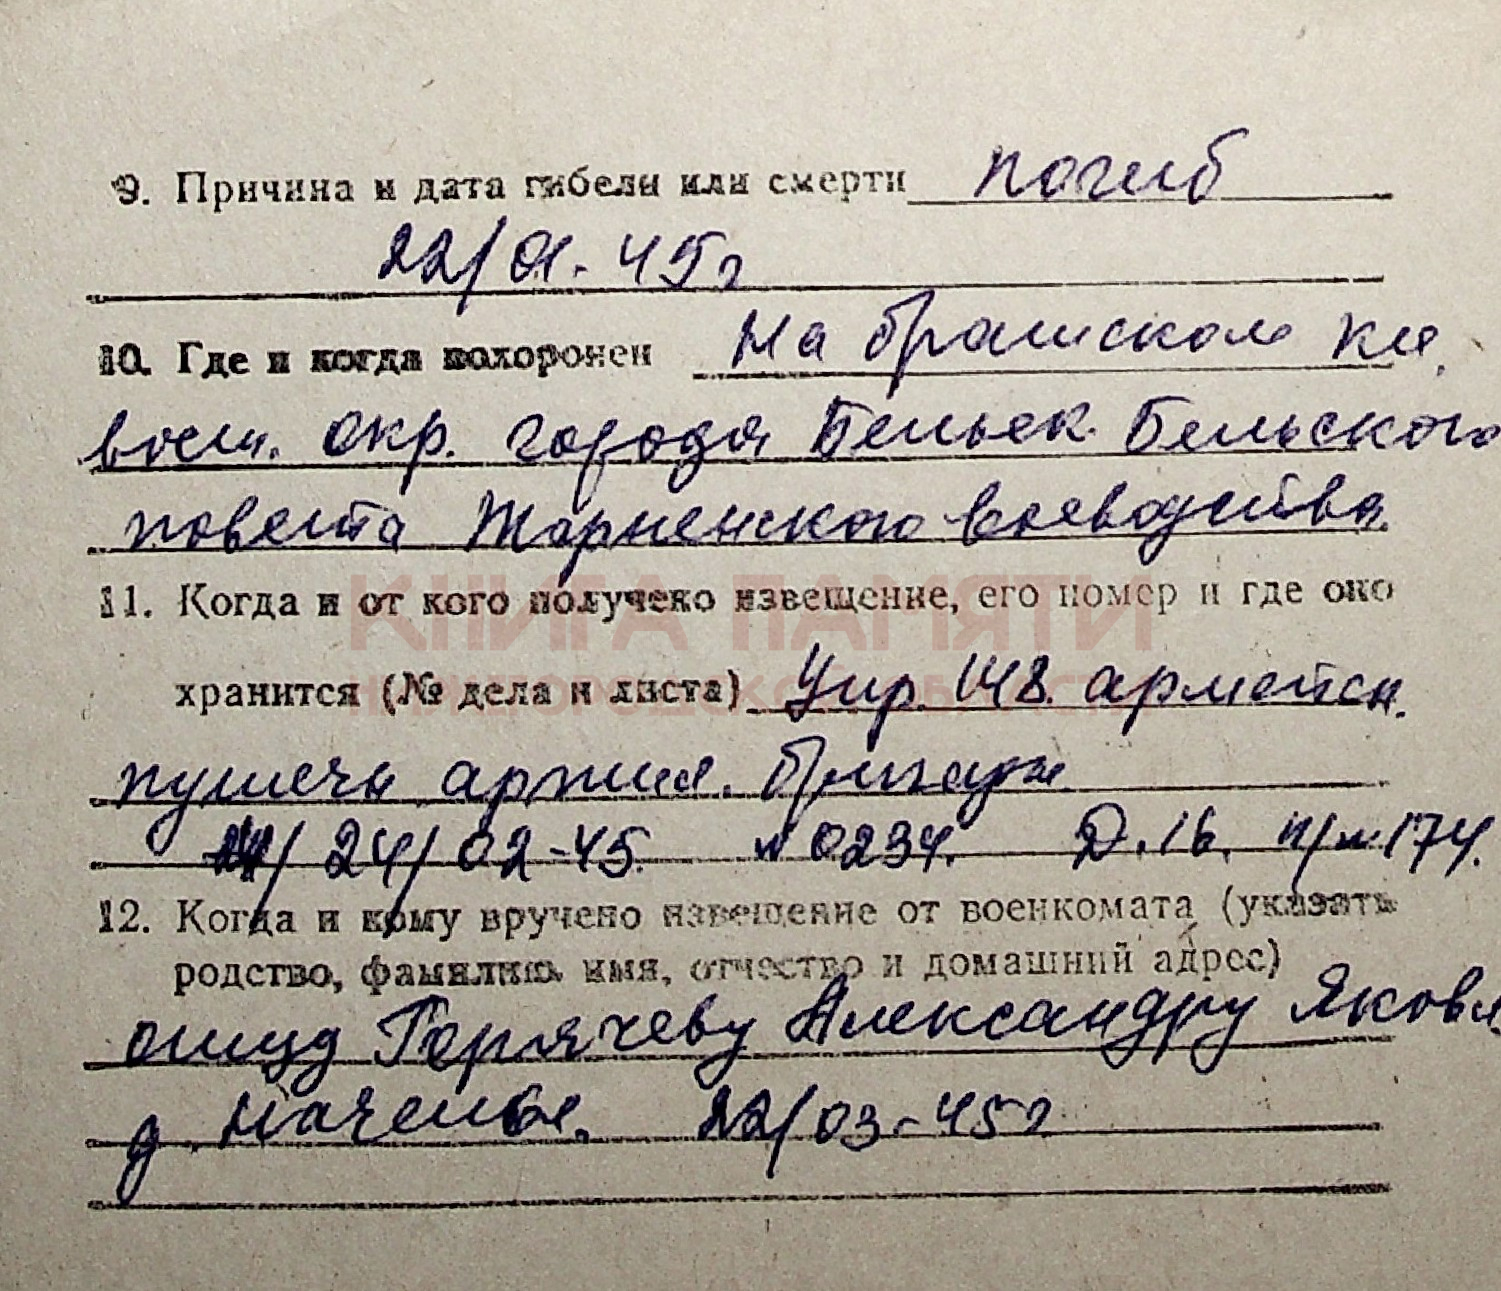 9. Причина и дата гибели или смерти погиб
22/01-45г
10. Где и когда похоронен На братском кл.
вост. окр. города Бельск Бельского
повета Жарненского воеводства.
11. Когда и от кого получено извещение, его номер и где оно
КНИГА ПАМЯТИ
хранится (№ дела и листа) Упр. 148 армейск.
пушечн артил. бригады
24/02-45. № 0234. Д. 16. п/н 174.
12. Когда и кому вручено извещение от военкомата (указать
родство, фамилию, имя, отчество и домашний адрес)
отцу Горячеву Александру Яковл
д. 22/03-45г